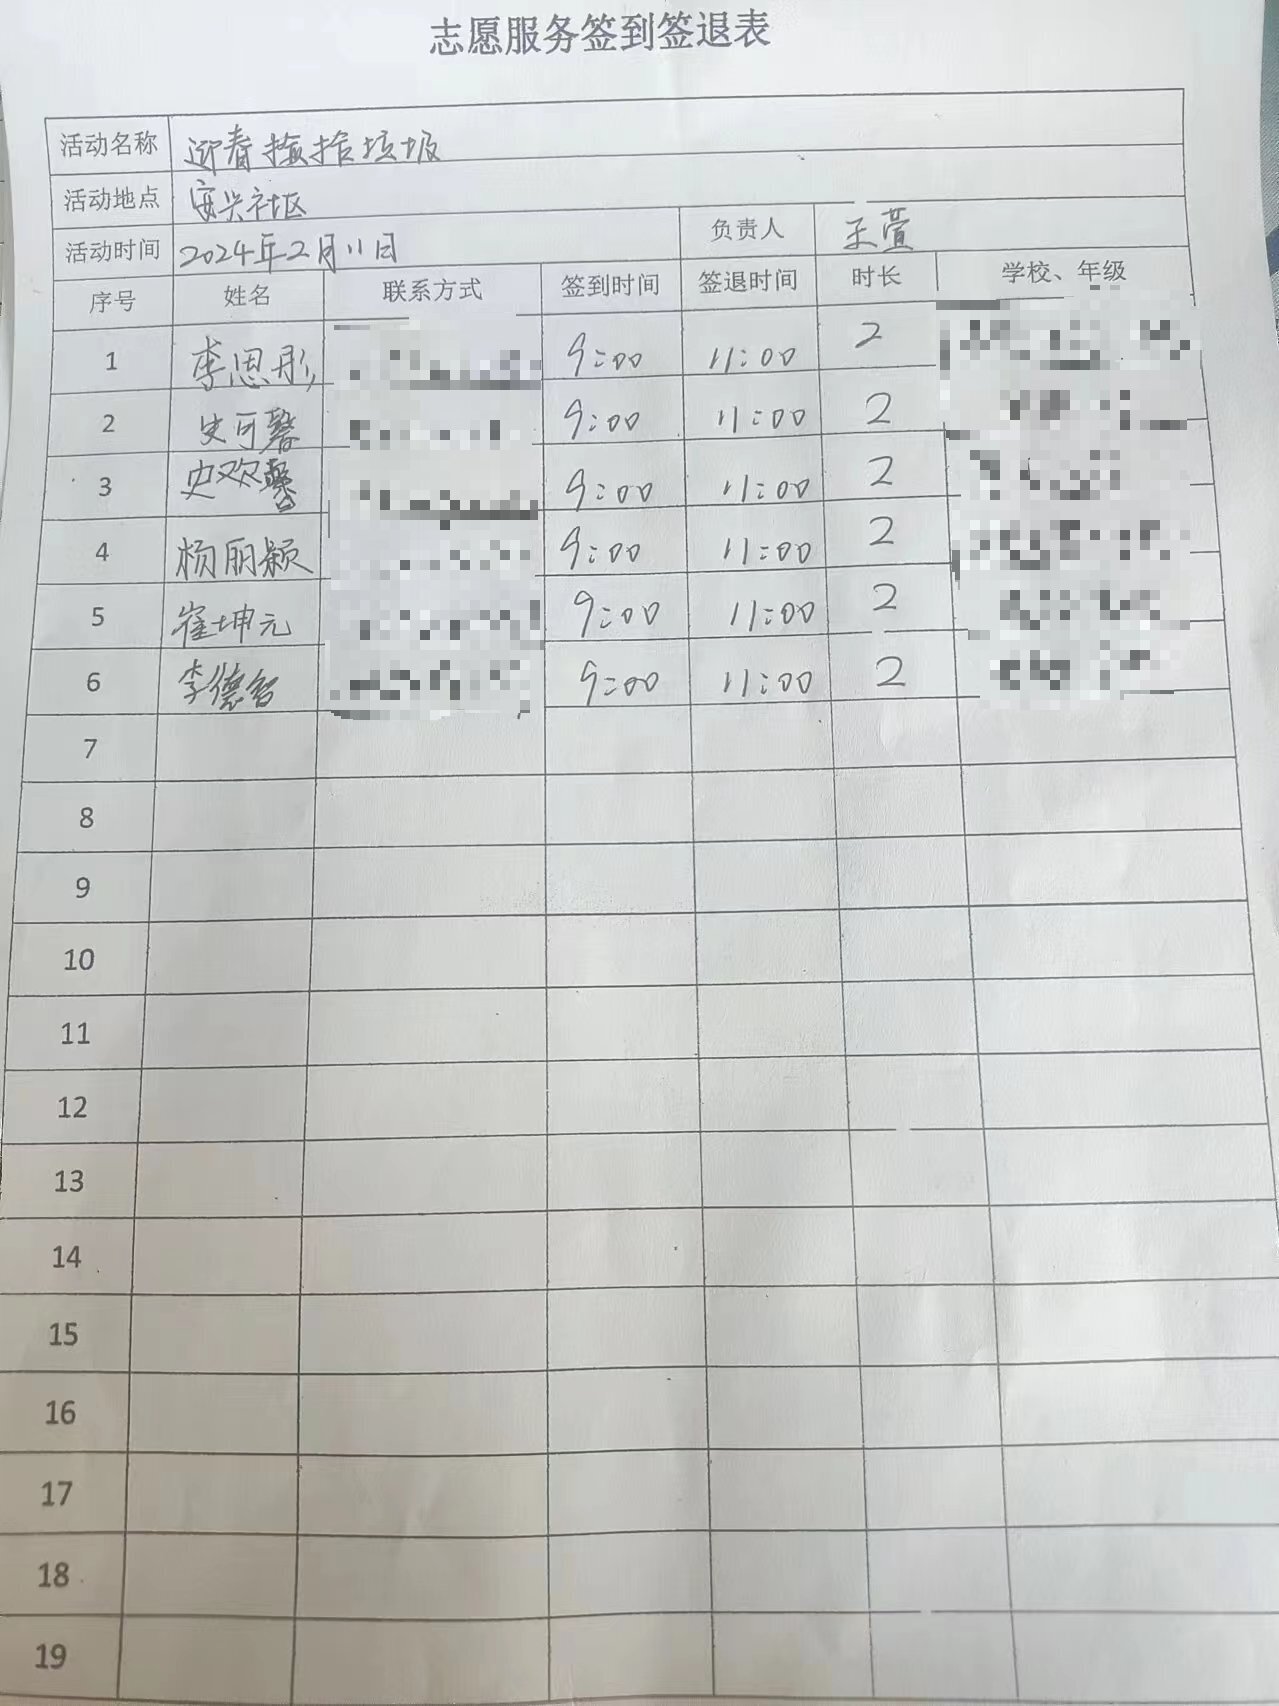 志愿服务签到签退表
活动名称 迎春捡拾垃圾
活动地点 安兴社区
活动时间 2024年2月11日 负责人 王萱
序号 姓名 联系方式 签到时间 签退时间 时长 学校、年级
1 李恩彤 9:00 11:00 2
2 史可馨 9:00 11:00 2
3 史欢馨 9:00 11:00 2
4 杨丽颖 9:00 11:00 2
5 崔坤元 9:00 11:00 2
6 李德智 9:00 11:00 2
7
8
9
10
11
12
13
14
15
16
17
18
19